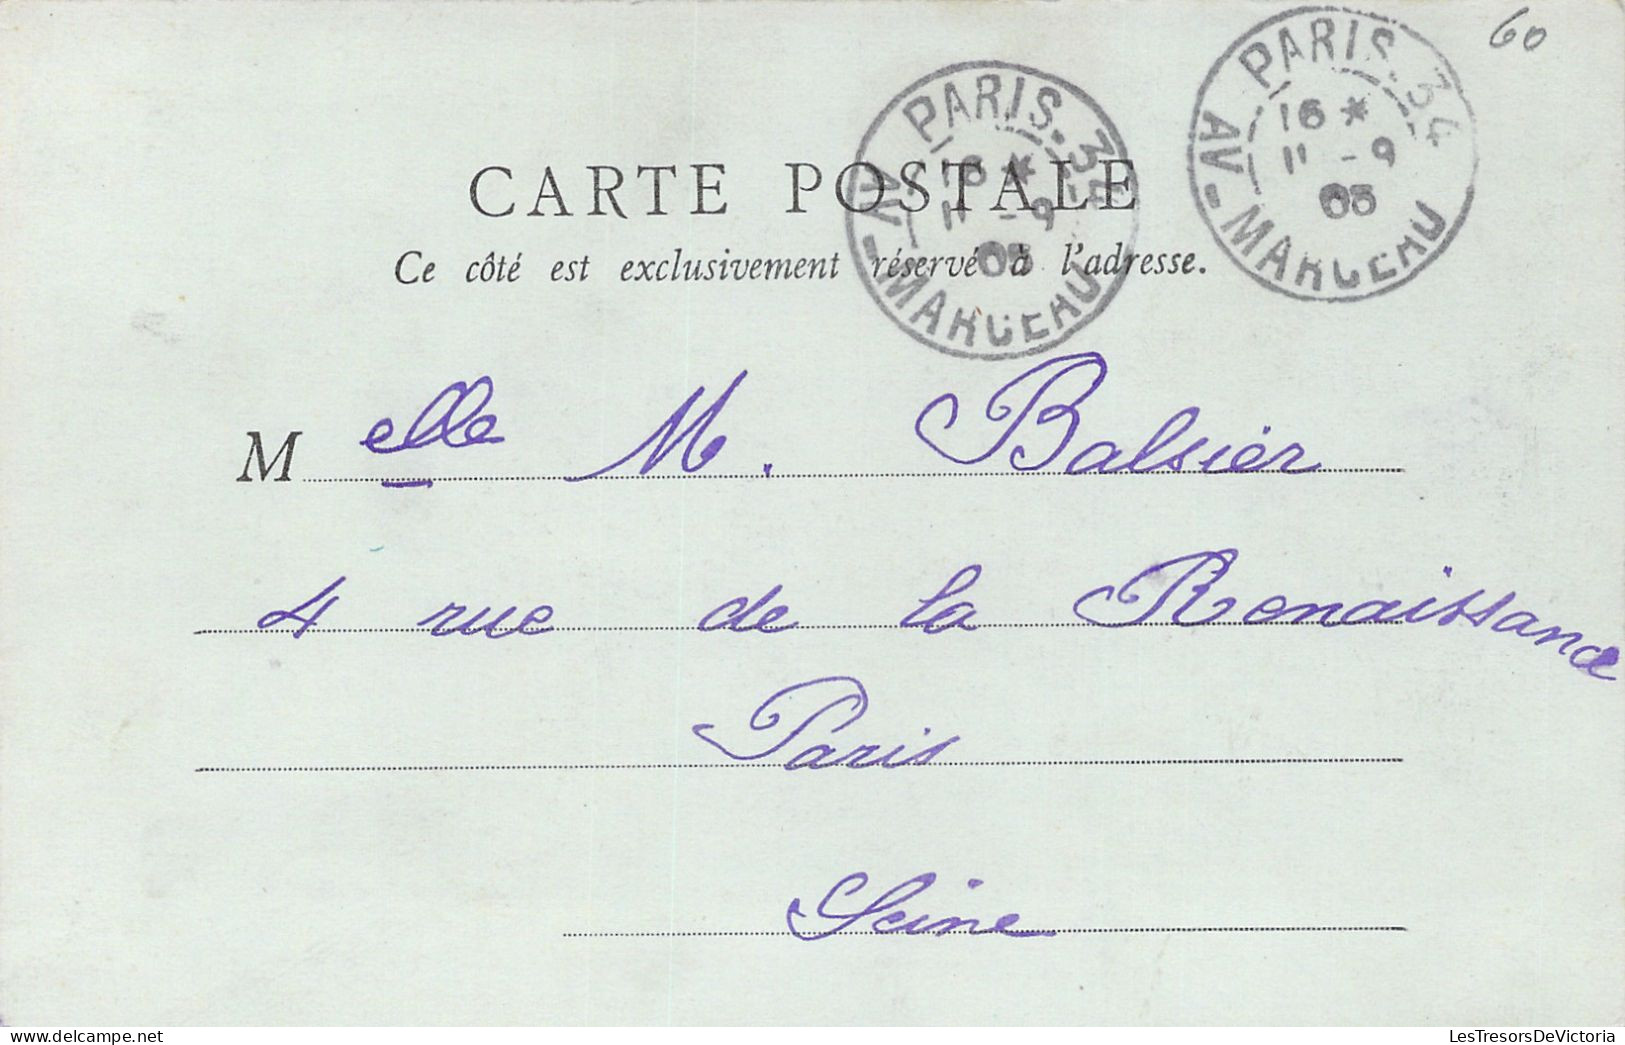 60
PARIS. 34
16 *
11 - 9
05
AV - MARCEAU
PARIS. 34
16 *
11 - 9
05
AV - MARCEAU
CARTE POSTALE
Ce côté est exclusivement réservé à l'adresse.
Melle M. Balsier
4 rue de la Renaissance
Paris
Seine
LesTresorsDeVictoria